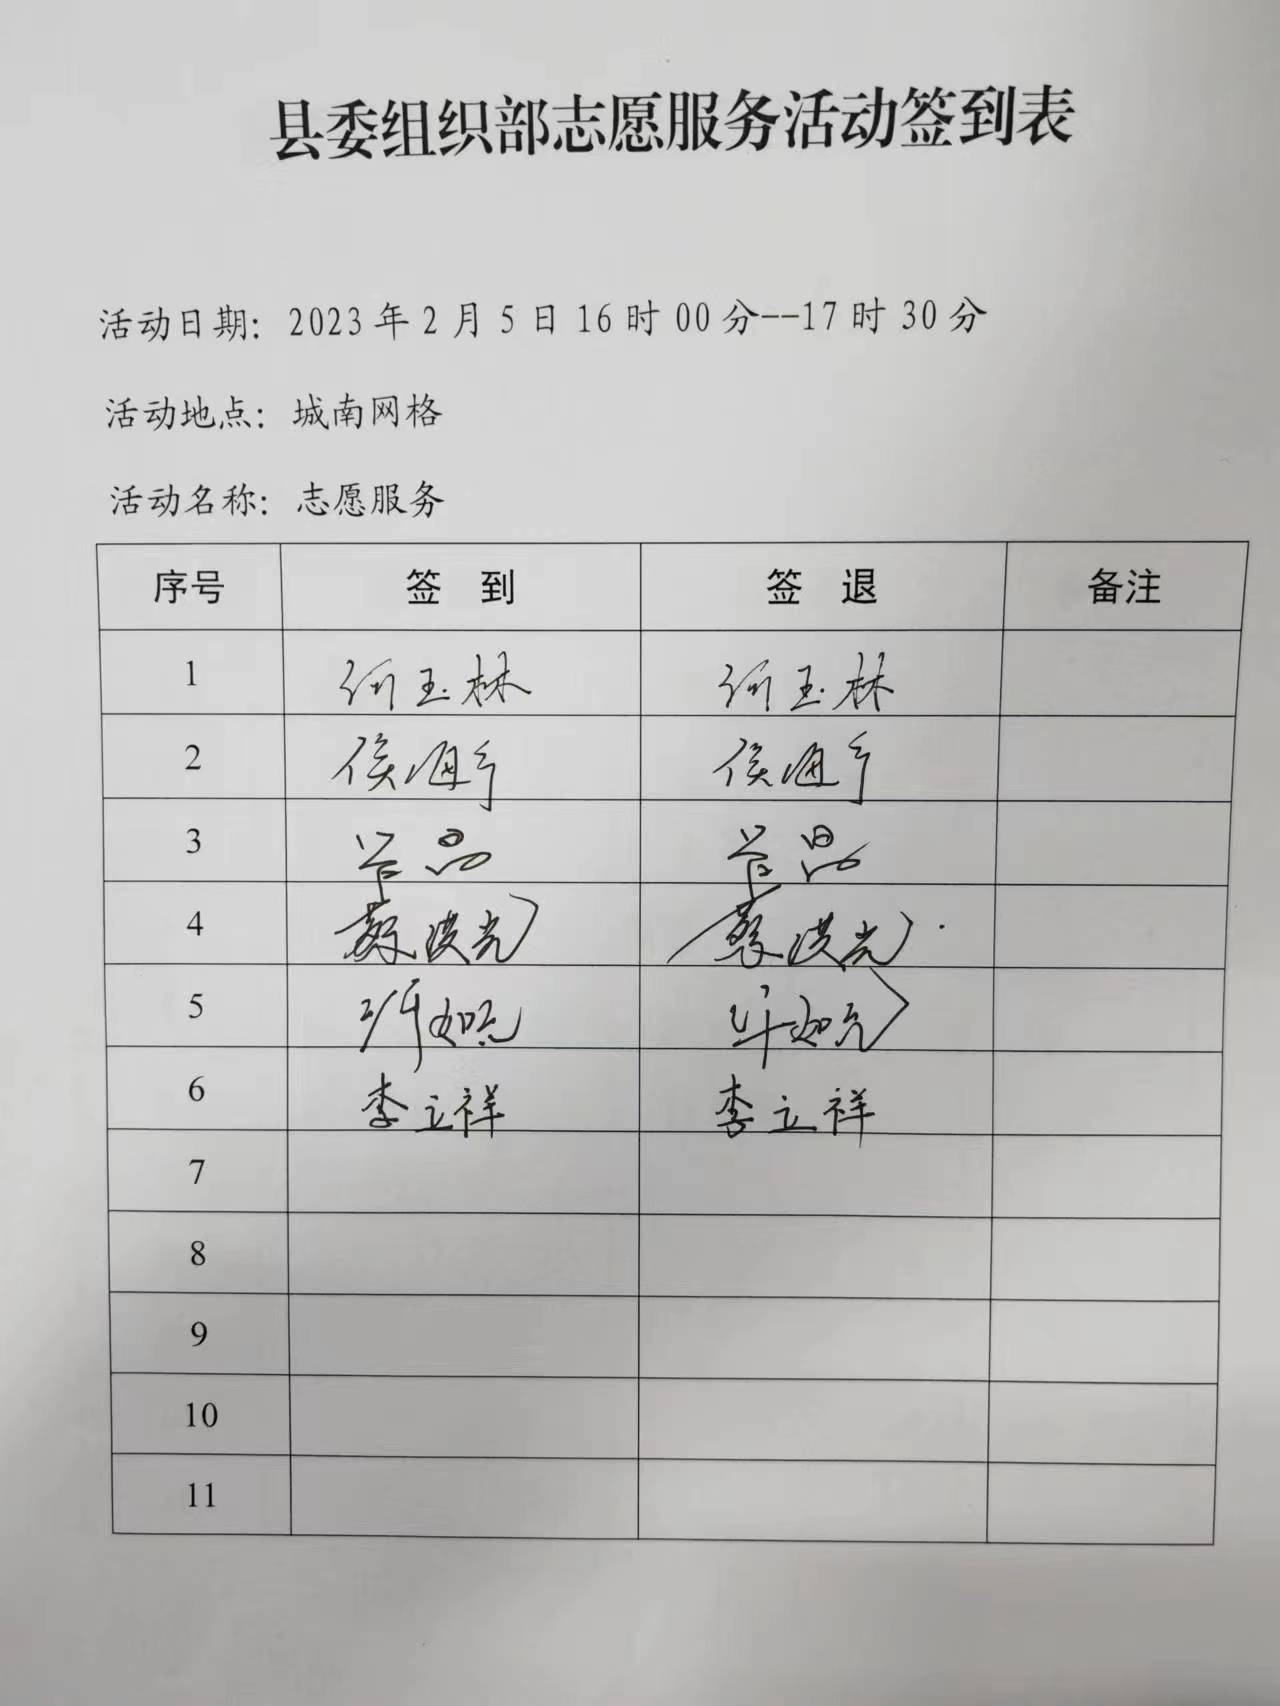 县委组织部志愿服务活动签到表
活动日期：2023年2月5日16时00分--17时30分
活动地点：城南网格
活动名称：志愿服务
序号 签 到 签 退 备注
1 何玉林 何玉林
2 侯海 侯海
3
4 蔡洪光 蔡洪光
5 许如 许如
6 李立祥 李立祥
7
8
9
10
11